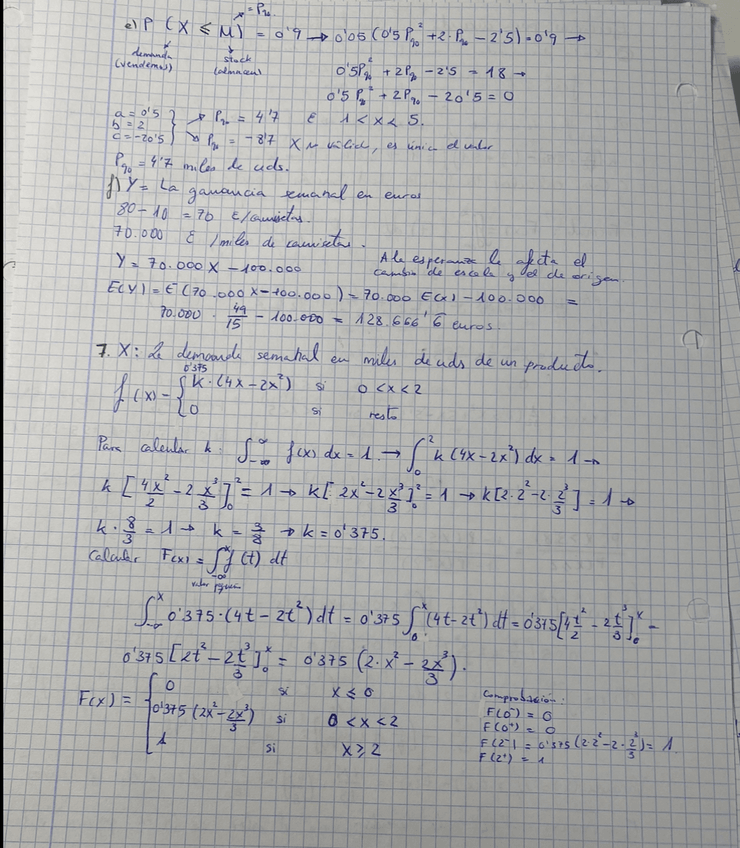 = P₉₀
e) P (X ≤ M) = 0'9 → 0'05 (0'5P₉₀² + 2·P₉₀ - 2'5) = 0'9 →
demanda (vendemos)
stock (almacen)
0'5P₉₀² + 2P₉₀ - 2'5 = 18 →
0'5 P₉₀² + 2P₉₀ - 20'5 = 0
a = 0'5
b = 2
c = -20'5
→ P₉₀ = 4'7 ∈ 1 < x < 5.
→ P₉₀ = -8'7 X válida, es único el valor
P₉₀ = 4'7 miles de uds.
f) Y = La ganancia semanal en euros
80 - 10 = 70 €/camisetas.
70.000 € /miles de camisetas.
Y = 70.000 X - 100.000
A la esperanza le afecta el cambio de escala y el de origen.
E(Y) = E(70.000 X - 100.000) = 70.000 E(X) - 100.000 =
70.000 · 49/15 - 100.000 = 128.666'6 euros.
7. X: La demanda semanal en miles de uds de un producto.
0'375
f(x) = { k·(4x - 2x²) si 0 < x < 2
0 si resto
Para calcular k: ∫_{-∞}^{∞} f(x) dx = 1 → ∫₀² k (4x - 2x²) dx = 1 →
k [4x²/2 - 2 x³/3]₀² = 1 → k[2x² - 2 x³/3]₀² = 1 → k[2·2² - 2·2³/3] = 1 →
k · 8/3 = 1 → k = 3/8 → k = 0'375.
Calcular F(x) = ∫_{-∞}^{x} f(t) dt
∫_{-∞}^{x} 0'375·(4t - 2t²) dt = 0'375 ∫₀ˣ (4t - 2t²) dt = 0'375 [4t²/2 - 2t³/3]₀ˣ =
0'375 [2t² - 2t³/3]₀ˣ = 0'375 (2·x² - 2x³/3).
F(x) = { 0 si x ≤ 0
0'375 (2x² - 2x³/3) si 0 < x < 2
1 si x ≥ 2
Comprobación:
F(0⁻) = 0
F(0⁺) = 0
F(2⁻) = 0'375(2·2² - 2·2³/3) = 1
F(2⁺) = 1